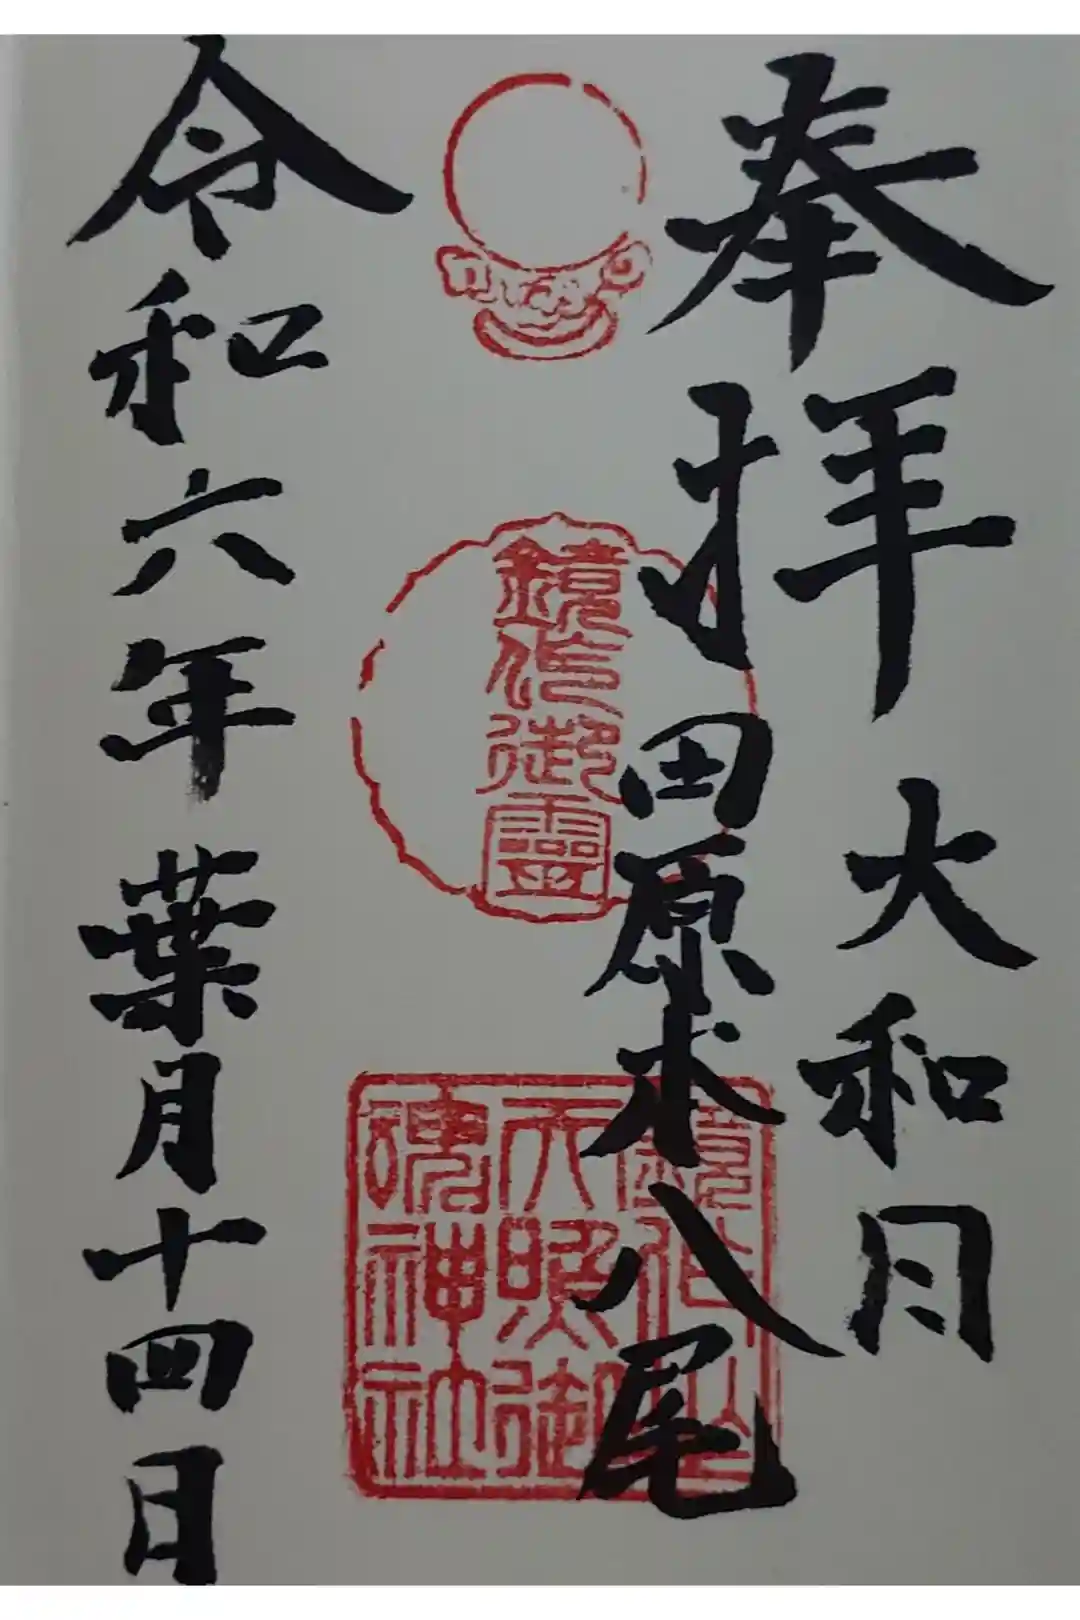 奉拝 大和国
田原本八尾
鏡作御靈
鏡作坐
天照御
魂神社
令和六年葉月十四日